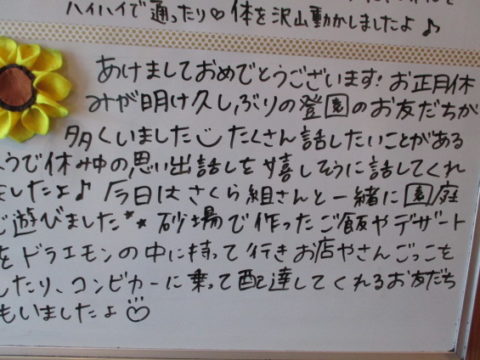 ハイハイで通ったり♡体を沢山動かしましたよ♪
あけましておめでとうございます!お正月休
みが明け久しぶりの登園のお友だちが
多くいました たくさん話したいことがある
うで休み中の思い出話しを嬉しそうに話してくれ
ましたよ♪今日はさくら組さんと一緒に園庭
で遊びました 砂場で作ったご飯やデザート
をドラエモンの中に持って行きお店やさんごっこを
したり、コンビカーに乗って配達してくれるお友だち
もいましたよ